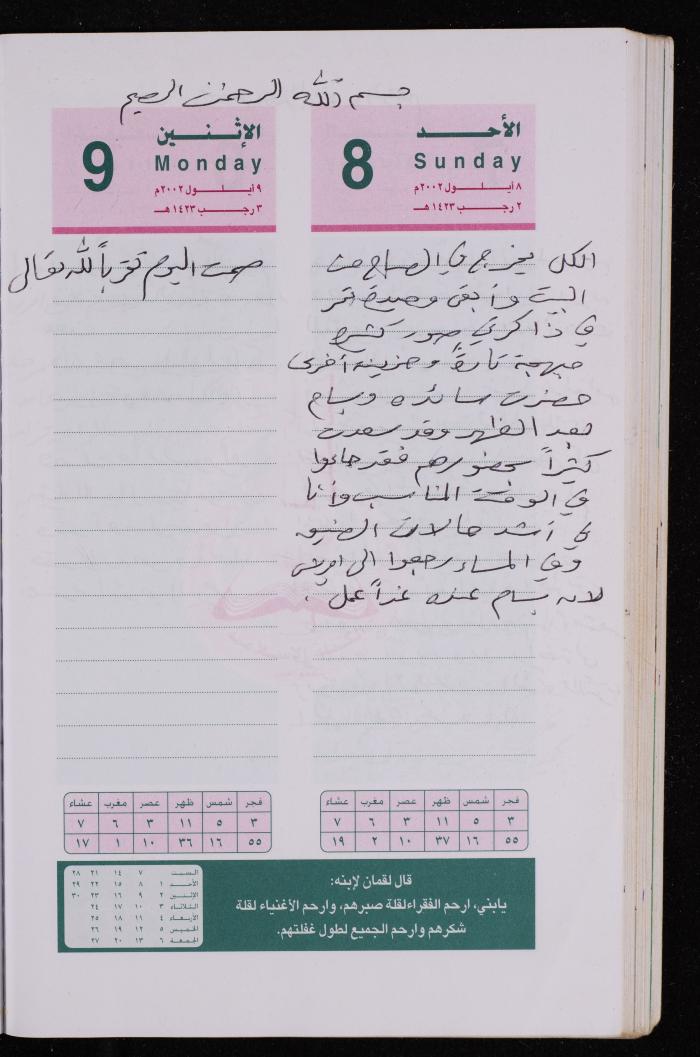 بسم الله الرحمن الرحيم
الأحـــد
8
Sunday
٨ أيـــلـــول ٢٠٠٢م
٢ رجــب ١٤٢٣هـ
الكل يخرج في الصباح من
البيت وأبقى وحيدة تمر
في ذاكرتي صور كثيرة
مبهجة تارةً وحزينة أخرى
حضرت سائده وبسام
بعد الظهر وقد سعدت
كثيراً بحضورهم فقد جاءوا
في الوقت المناسب وأنا
في أشد حالات الضيق
وفي المساء رجعوا الى
لانه بسام عنده غداً عمل .
فجر شمس ظهر عصر مغرب عشاء
٣ ٥ ١١ ٣ ٦ ٧
٥٥ ١٦ ٣٧ ١٠ ٢ ١٩
الإثـنـــين
9
Monday
٩ أيـــلـــول ٢٠٠٢م
٣ رجــب ١٤٢٣هـ
صمت اليوم تقرباً لله تعالى
فجر شمس ظهر عصر مغرب عشاء
٣ ٥ ١١ ٣ ٦ ٧
٥٥ ١٦ ٣٦ ١٠ ١ ١٧
قال لقمان لإبنه:
يابني، ارحم الفقراء لقلة صبرهم، وارحم الأغنياء لقلة
شكرهم وارحم الجميع لطول غفلتهم.
السبت ٧ ١٤ ٢١ ٢٨
الأحد ١ ٨ ١٥ ٢٢ ٢٩
الإثنين ٢ ٩ ١٦ ٢٣ ٣٠
الثلاثاء ٣ ١٠ ١٧ ٢٤
الأربعاء ٤ ١١ ١٨ ٢٥
الخميس ٥ ١٢ ١٩ ٢٦
الجمعة ٦ ١٣ ٢٠ ٢٧